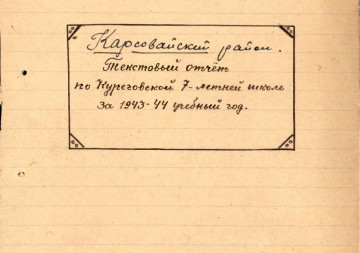 Карсовайский район.
Текстовый отчёт
по Куреговской 7-летней школе
за 1943-44 учебный год.